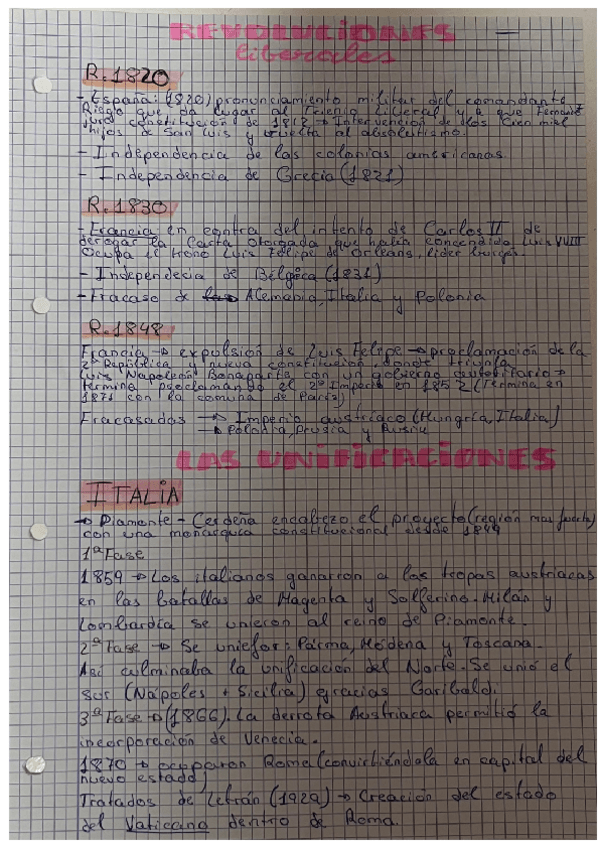 REVOLUCIONES
liberales
R. 1820
- España: (1820) pronunciamiento militar del comandante
Riego que da lugar al Trienio Liberal y a que Fernando
jura constitución de 1812 → Intervención de los Cien mil
hijos de San Luis y vuelta al absolutismo.
- Independencia de las colonias americanas
- Independencia de Grecia (1821)
R. 1830
- Francia en contra del intento de Carlos de
derogar la Carta Otorgada que había concendido Luis XVIII
Ocupa el trono Luis Felipe de Orleans, lider burgés.
- Independecia de Bélgica (1831)
- Fracaso de Alemania, Italia y Polonia
R. 1848
Francia → expulsión de Luis Felipe → proclamación de la
2ª República y nueva constitución, donde triunfa
Luis Napoleón Bonaparte con un gobierno autoritario →
termina proclamando el 2º Imperio en 1852 (Termina en
1871 con la comuna de París)
Fracasados → Imperio austriaco (Hungría, Italia)
→ Polonia, Prusia y
LAS UNIFICACIONES
ITALIA
→ Piamonte - Cerdeña encabezo el proyecto (región mas fuerte)
con una monarquía constitucional desde 1849
1ª Fase
1859 → Los italianos ganarron a las tropas austriacas
en las batallas de Magenta y Solferino. Milán y
Lombardía se unieron al reino de Piamonte.
2ª Fase → Se : Parma, Módena y Toscana.
Así culminaba la unificación del Norte. Se unió el
sur (Nápoles + Sicilia) gracias Garibaldi
3ª Fase → (1866). La derrota Austriaca permitió la
incorporación de Venecia.
1870 → ocuparon Roma (convirtiéndola en capital del
nuevo estado)
Tratados de Letrán (1929) → Creación del estado
del Vaticano dentro de Roma.